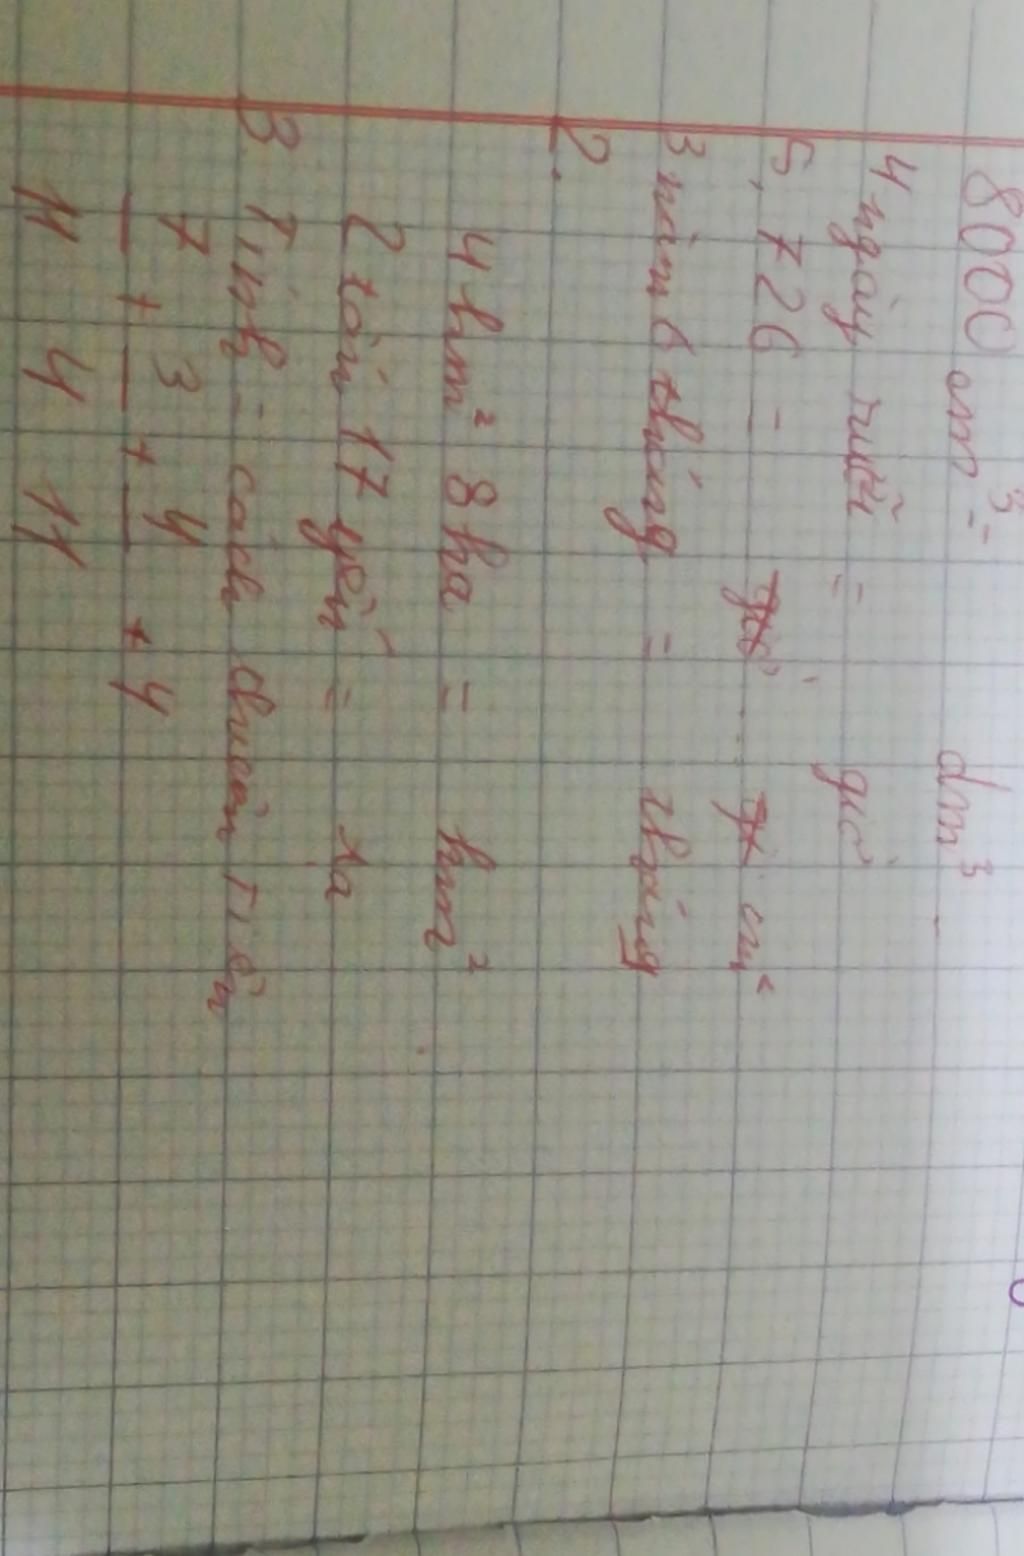 8000 cm³ = dm³
4 ngày rưỡi = giờ
5,726 = cm²
3 năm 6 tháng = tháng
2.
4hm² 8ha = hm²
2 tấn 17 yến = tạ
3 Tính = cách thuận tiện
7/11 + 3/4 + 4/11 + 4